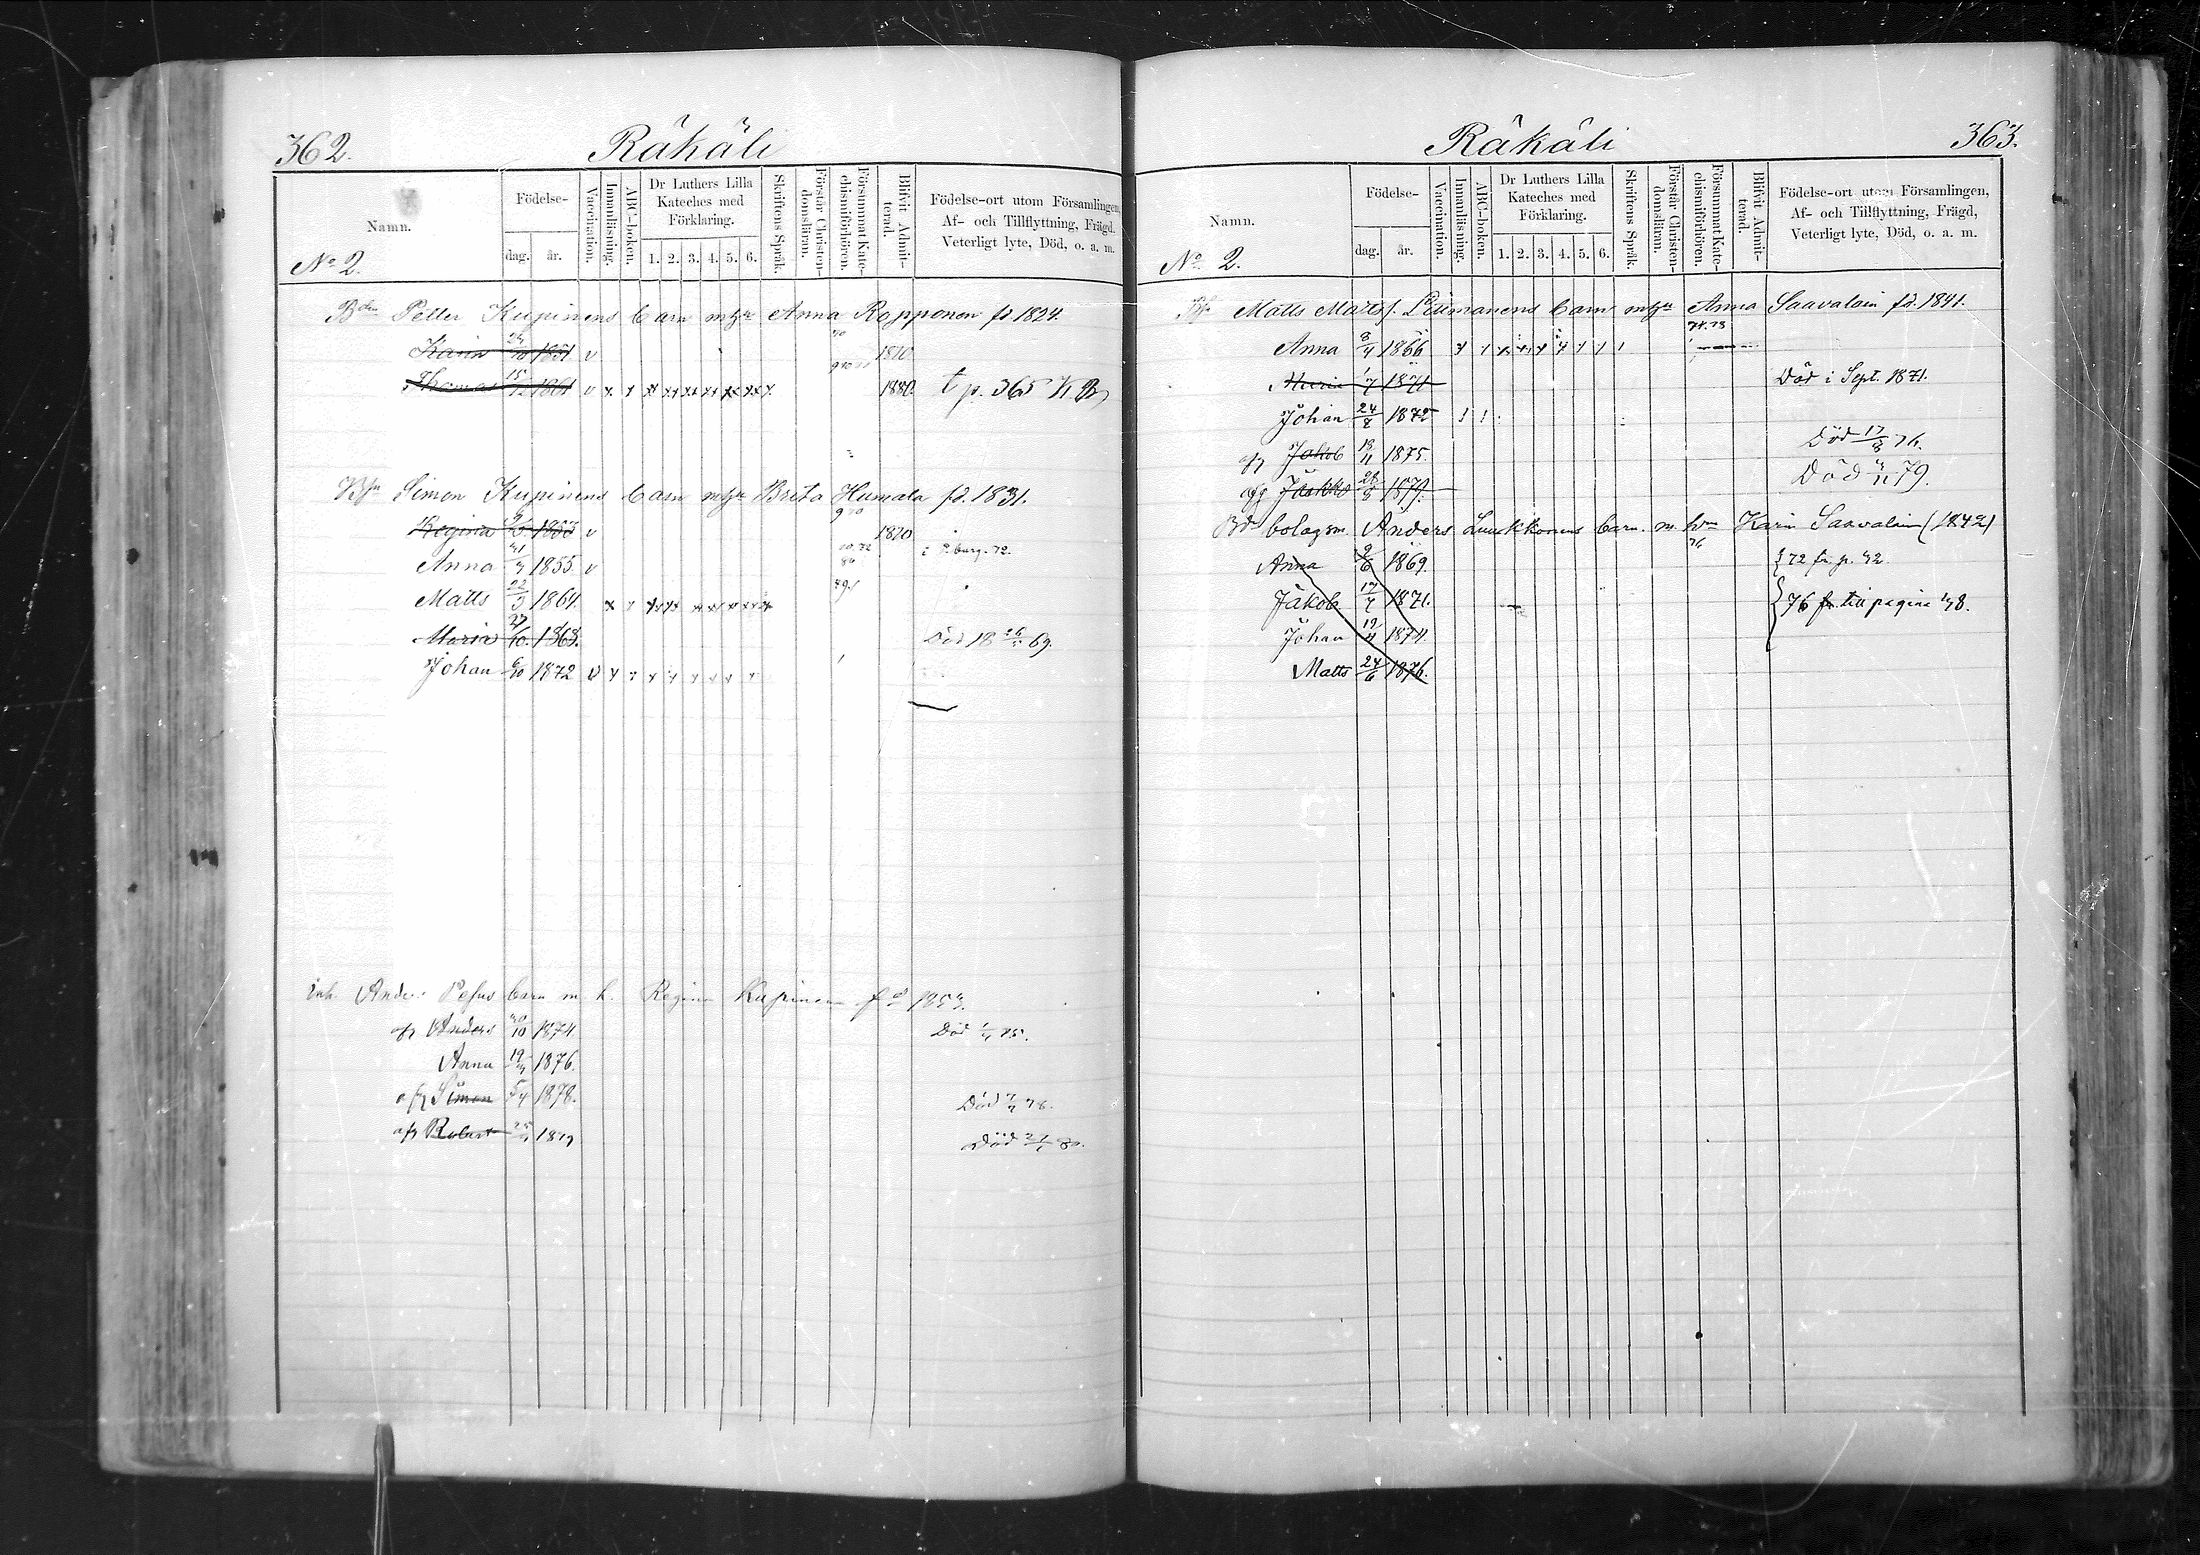 362.
Räkäli
Namn.
Födelse-
dag.
år.
Vaccination.
Innanläsning.
ABC-boken.
Dr Luthers Lilla
Kateches med
Förklaring.
1. 2. 3. 4. 5. 6.
Skriftens Språk.
Förstår Christen-
domsläran.
Försummat Kate-
chismiförhören.
Blifvit Admit-
terad.
Födelse-ort utom Församlingen,
Af- och Tillflyttning, Frägd,
Veterligt lyte, Död, o. a. m.
No 2.
Bden Petter Kupinens barn m Anna Rapponen fd. 1824.
Karin 1851 v 1870
Thomas 15/12 1861 v x x 1880. t p. 365 K B
Simon Kupinens barn Brita Humala fd. 1831.
Regina 1853 v 1870
Anna 1855 v burg. 72.
Matts 1864.
Maria 27/10. 1868. Död 18 69.
Johan 6/10 1872 v
inh Anders barn m h. Regina Kupinen fd 1853.
Anders 10 1874 Död 75.
Anna 19 1876.
Simon 5/4 1878. Död 78.
Robert 25 1879 Död 80.
363.
Räkäli
Namn.
Födelse-
dag.
år.
Vaccination.
Innanläsning.
ABC-boken.
Dr Luthers Lilla
Kateches med
Förklaring.
1. 2. 3. 4. 5. 6.
Skriftens Språk.
Förstår Christen-
domsläran.
Försummat Kate-
chismiförhören.
Blifvit Admit-
terad.
Födelse-ort utom Församlingen,
Af- och Tillflyttning, Frägd,
Veterligt lyte, Död, o. a. m.
No 2.
Matts Matts f. barn Anna Saavalain fd. 1841.
Anna 8/4 1866
Maria 1/7 1871 Död i Sept. 1871.
Johan 24/8 1872
Jakob 13/11 1875. Död 17/8 76.
Jaakko 28/8 1879. Död 79.
bolagsm. Anders Luukkonens barn m. Karin Saavalain (1842)
Anna 9/6 1869. 72 fr. p. 42.
Jakob 17/7 1871. 76 fr. till pagina 48.
Johan 19/4 1874.
Matts 24/6 1876.